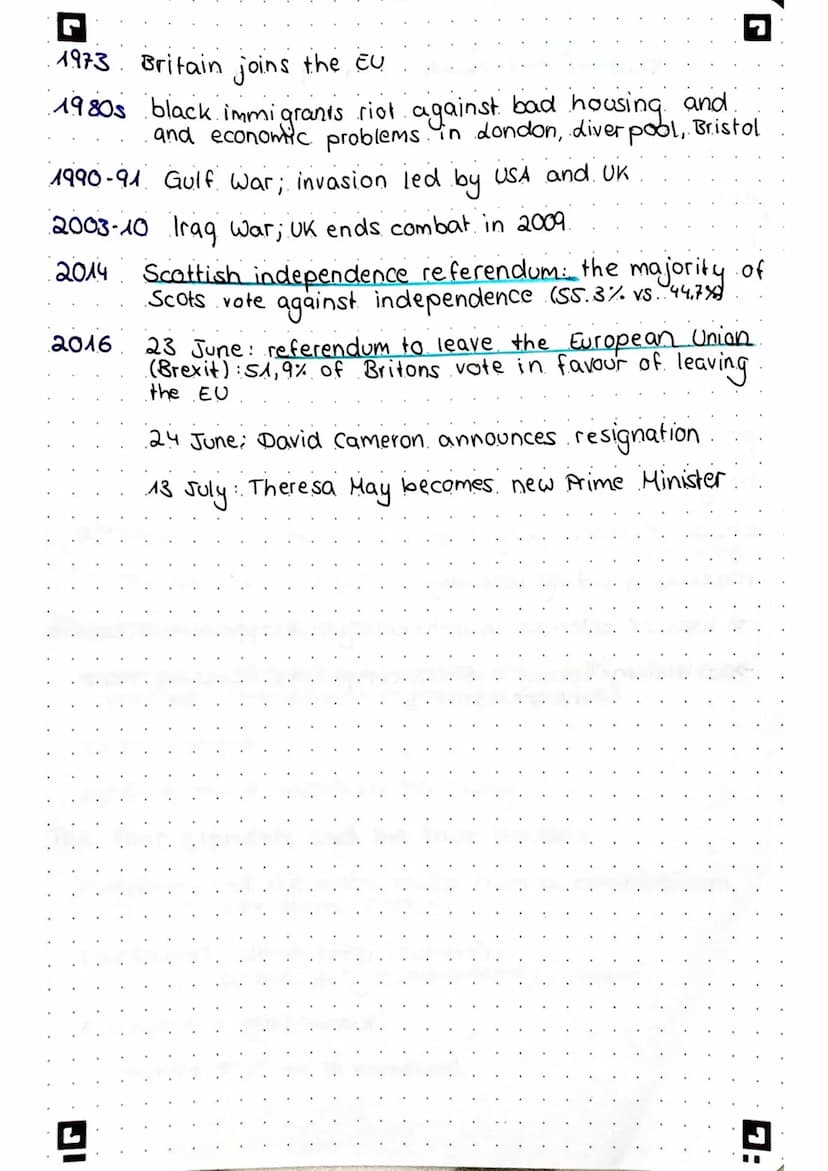 1973 Britain joins the EU
1980s black immigrants riot against bad housing and
and economic problems in London, Liverpool, Bristol
1990-91 Gulf War; invasion led by USA and UK
2003-10 Iraq War; UK ends combat in 2009
2014 Scottish independence referendum: the majority of
Scots vote against independence (55.3% vs. 44,7%)
2016 23 June: referendum to leave the European Union
(Brexit): 51,9% of Britons vote in favour of leaving
the EU
24 June: David Cameron announces resignation
13 July: Theresa May becomes new Prime Minister